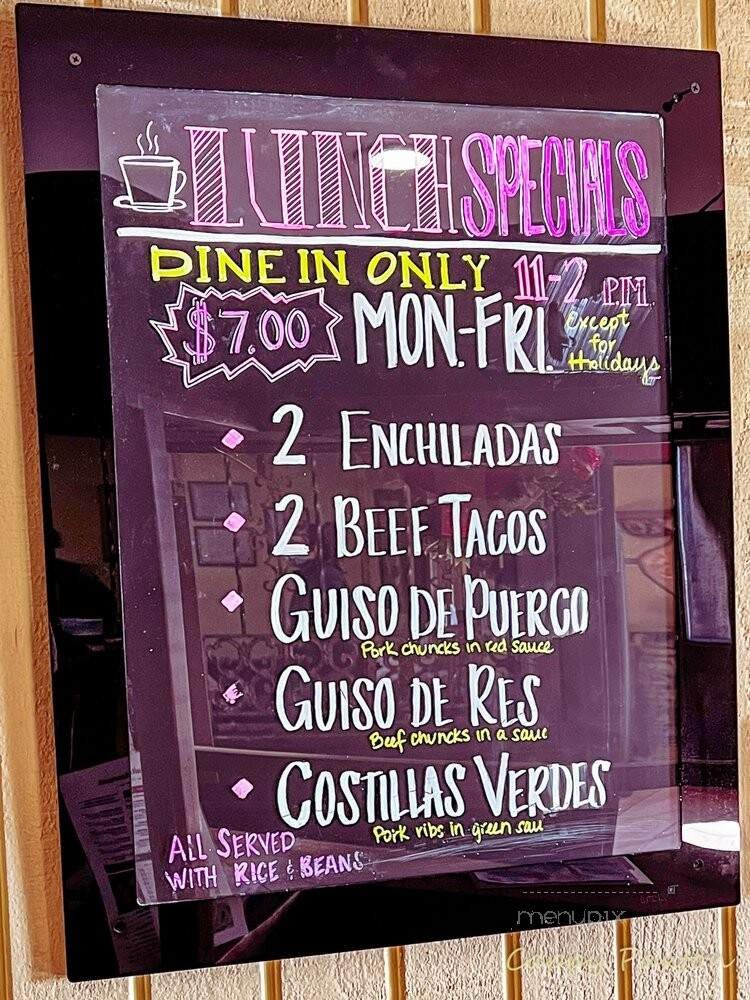 LUNCH SPECIALS
DINE IN ONLY 11-2 P.M.
$7.00 MON.-FRI. Except
for
Holidays
2 ENCHILADAS
2 BEEF TACOS
GUISO DE PUERCO
Pork chuncks in red sauce
GUISO DE RES
Beef chuncks in a sauc
COSTILLAS VERDES
Pork ribs in green sau
ALL SERVED
WITH RICE & BEANS
menupix